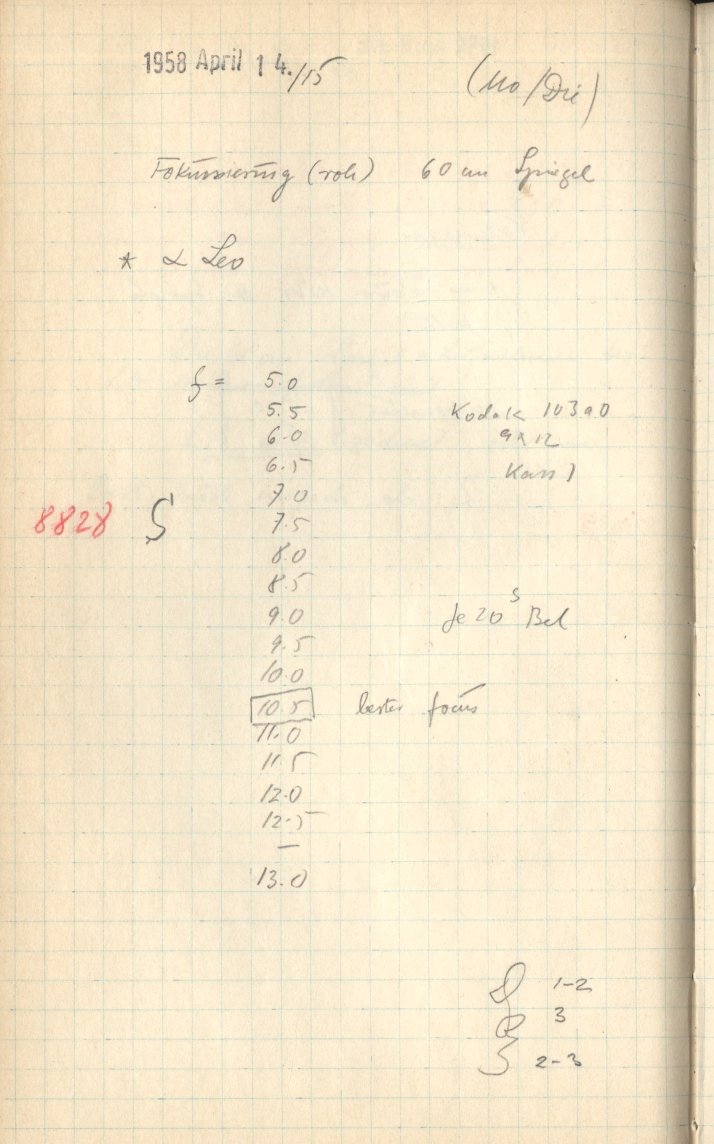 1958 April 14./15 (Mo/Die)
Fokussierung (roh) 60 cm Spiegel
* α Leo
f = 5.0
5.5 Kodak 103a0
6.0 9x12
6.5 Kass 1
7.0
8828 S 7.5
8.0
8.5
9.0 Je 20 s Bel
9.5
10.0
10.5 bester focus
11.0
11.5
12.0
12.5
—
13.0
1-2
3
2-3